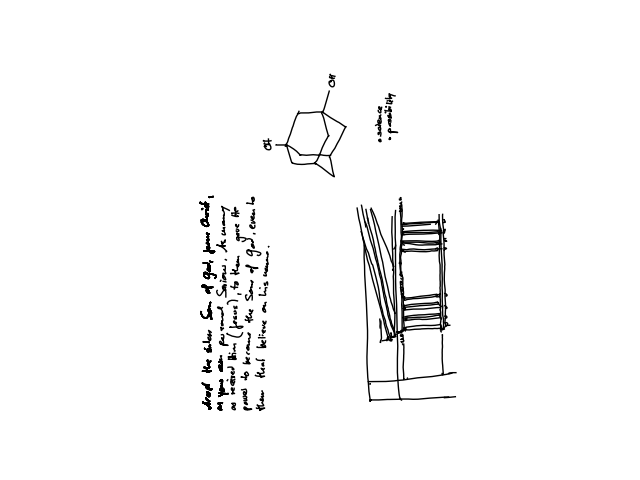 the Son of God, Jesus Christ,
as your own personal Saviour. As many
as received Him (Jesus), to them gave He
power to become the Sons of God, even to
them that believe on his name.
OH
OH
• science
• possibility